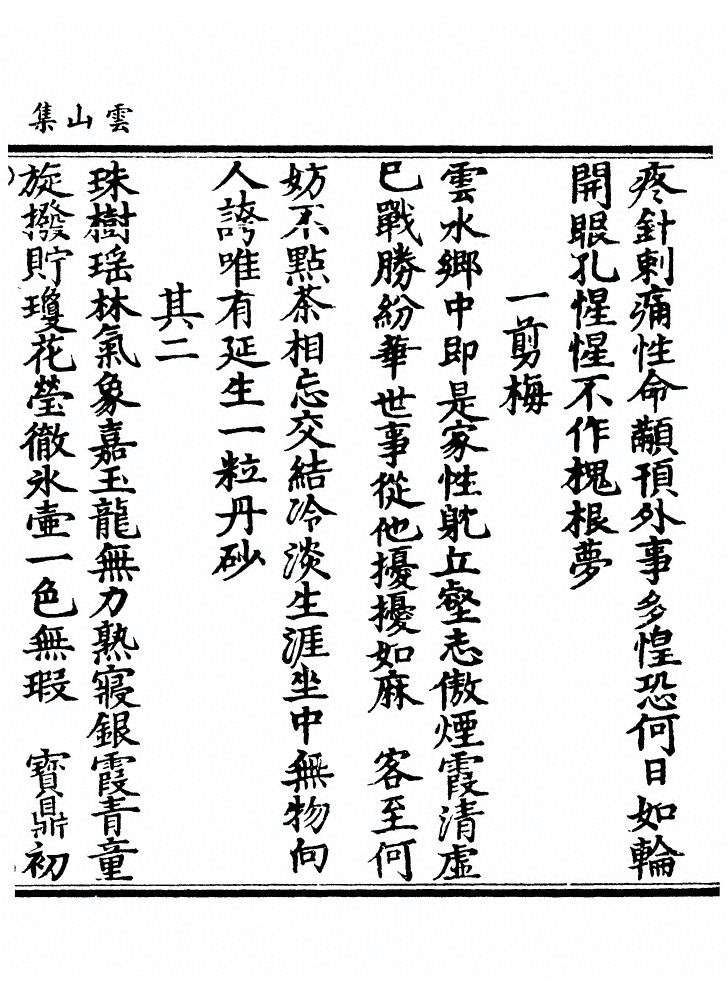 雲山集
疼針刺痛性命顢頇外事多惶恐何日如輪
開眼孔惺惺不作槐根夢
一剪梅
雲水鄉中即是家性躭丘壑志傲煙霞清虛
已戰勝紛華世事從他擾擾如麻　客至何
妨不點茶相忘交結冷淡生涯坐中無物向
人誇唯有延生一粒丹砂
其二
珠樹瑶林氣象嘉玉龍無力熟寢銀霞青童
旋撥貯瓊花瑩徹氷壷一色無瑕　寶鼎初